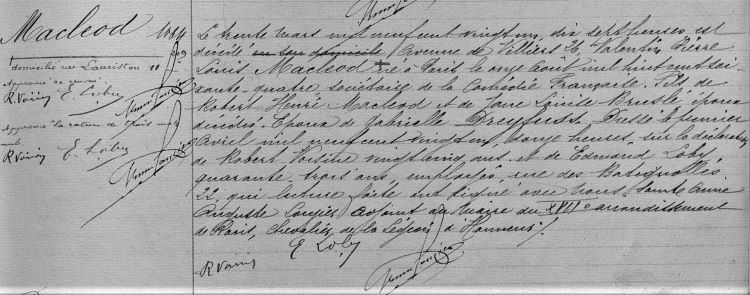 Macleod 1084
domicilié rue Lauriston 11
Approuvé ce renvoi
R Voisin E. Loby
Approuvé la rature de trois mots
nuls
R Voisin E. Loby
Le trente mars mil neuf cent vingt un, dix sept heures est
décédé en son domicile, Avenue de Villiers 26, Valentin Pierre
Louis Macleod né à Paris le onze août mil huit cent soi-
xante-quatre, sociétaire de la Comédie Française. Fils de
Robert Henri Macleod et de Jane, époux
décédés. Epoux de Gabrielle Dreyfuss. Dressé le premier
Avril mil neuf cent vingt un, heures, sur la déclaration
de Robert Voisin, vingt cinq ans et de Edmond Loby
quarante trois ans, employés, rue des Batignolles
22, qui lecture faite ont signé avec nous,
Auguste adjoint au Maire du XVIIe arrondissement
de Paris, Chevalier de la Légion d'Honneur ./.
E Loby
R Voisin